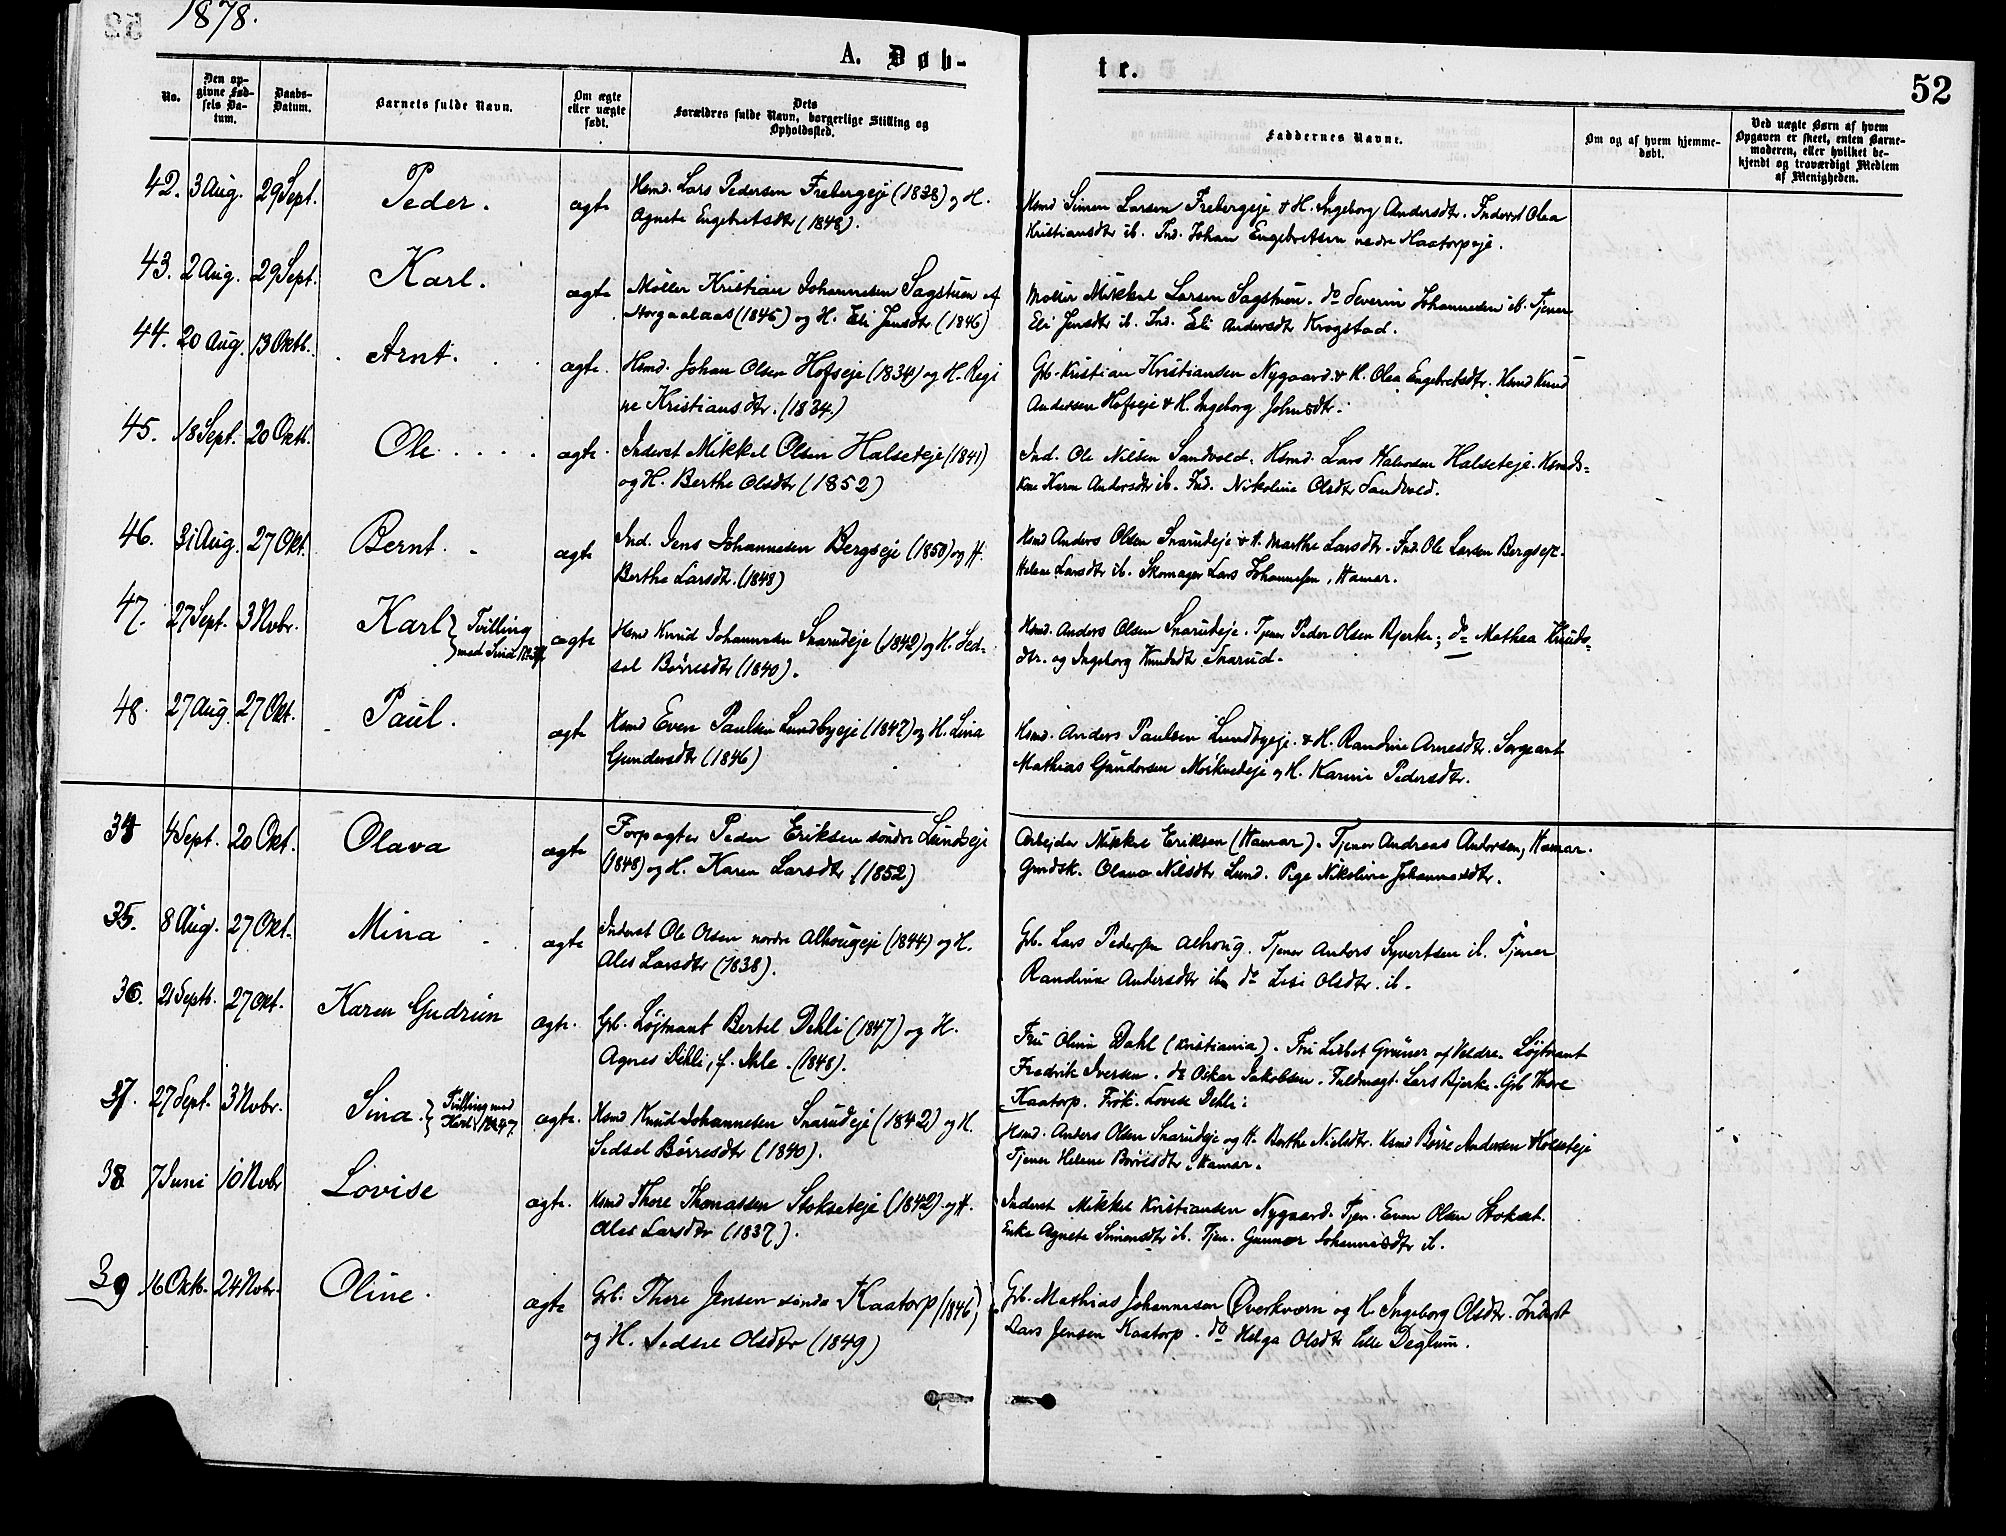 1878.
A. Døb-
te.
52
No.
Den op-
givne Fød-
sels Da-
tum.
Daabs-
Datum.
Barnets fulde Navn.
Om ægte
eller uægte
født.
Dets
Forældres fulde Navn, borgerlige Stilling og
Opholdssted.
Faddernes Navne.
Om og af hvem hjemme-
døbt.
Ved uægte Børn af hvem
Opgaven er skeet, enten Barne-
moderen, eller hvilket be-
kjendt og troværdigt Medlem
af Menigheden.
42. 3 Aug. 29 Sept. Peder. ægte
Hsmd. Lars Pedersen Frebergeje (1838) og H.
Agnete Engebretsdtr (1848).
Hsmd Simen Larsen Frebergeje & H. Ingeborg Andersdtr. Inderst Olea
Kristiansdtr ib. Ind. Johan Engebretsen nedre Kaatorpeje.
43. 2 Aug. 29 Sept. Karl. ægte
Møller Kristian Johannesen Sagstuen af
(1845) og H. Eli Jensdtr (1846)
Møller Mikkel Larsen Sagstuen. do Severin Johannesen ib. Tjener
Eli Jensdtr ib. Ind. Eli Andersdtr Krogstad.
44. 20 Aug. 13 Oktb. Arnt. ægte.
Hsmd. Johan Olsen Hofseje (1834) og H. Regi
ne Kristiansdtr. (1834.)
Grb. Kristian Kristiansen Nygaard. & H. Olea Engebretsdtr. Hsmd Knud
Andersen Hofseje & H. Ingeborg Johnsdtr.
45. 18 Sept. 20 Oktb. Ole ægte.
Inderst Mikkel Olsen Halseteje (1841)
og H. Berthe Olsdtr (1852)
Ind. Ole Nilsen Sandvold. Hsmd. Lars Halvorsen Halseteje. Hsmds=
kne Karen Andersdtr ib. Ind. Nikoline Olsdtr Sandvold.
46. 31 Aug. 27 Okt. Bernt. ægte
Ind. Jens Johannesen Bergseje (1850) og H.
Berthe Larsdtr. (1848)
Hsmd Anders Olsen Snarudeje & H. Marthe Larsdtr. Ind. Ole Larsen Bergseje.
Helene Larsdtr ib. Skomager Lars Johannesen, Hamar.
47. 27 Sept. 3 Nvbr. Karl } Tvilling
med Sina No 37 ægte
Hsmd Knud Johannesen Snarudeje (1842) og H. Sed=
sel Børresdtr (1840).
Hsmd. Anders Olsen Snarudeje. Tjener Peder Olsen Bjerke; do Mathea Knuds=
dtr. og Ingeborg Knudsdtr Snarud.
48. 27 Aug. 27 Okt. Paul. ægte
Hsmd Even Paulsen Lundbyeje (1847) og H. Lina
Gundersdtr (1846)
Hsmd. Anders Paulsen Lundbyeje. & H. Randine Arnesdtr. Sergeant
Mathias Gundersen og H. Karine Pedersdtr.
34 4 Sept. 20 Okt. Olava ægte
Forpagter Peder Eriksen søndre Lundseje
(1848) og H. Karen Larsdtr (1852)
Arbejder Mikkel Eriksen (Hamar). Tjener Andreas Andersen, Hamar.
Grmdsk. Olava Nilsdtr Lund. Pige Nikoline Johannesdtr.
35. 8 Aug. 27 Okt. Mina ægte
Inderst Ole Olsen nordre Alhougeje (1844) og H.
Ales Larsdtr (1838).
Grb. Lars Pedersen Alhoug. Tjener Anders Syvertsen ib. Tjener
Randine Andersdtr ib. do Lisi Olsdtr. ib.
36. 21 Septb. 27 Okt. Karen Gudrun ægte.
Grb. Løjtnant Bertel Dehli (1847) og H.
Agnes Dehli, f. Mhle. (1848).
Fru Olina Dahl (Kristiania). Fru Lisbet Grüner af Veldre. Løjtnant
Fredrik Iversen. do Oskar Jakobsen. Fuldmægt. Lars Bjerke. Grb Thore
Kaatorp. Frøk. Lovise Dehli.
37. 27 Sept. 3 Nvbr. Sina. } Tvilling med
Karl No 47. ægte.
Hsmd Knud Johannesen Snarudeje (1842) og H.
Sedsel Børresdtr (1840).
Hsmd. Anders Olsen Snarudeje og H. Berthe Nielsdtr. Hsmd Børre Andersen Holseteje
Tjener Helene Børresdtr, Hamar.
38 7 Juni 10 Nvbr Lovise ægte.
Hsmd Thore Thomassen Stokseteje (1842) og H.
Ales Larsdtr (1837).
Inderst Mikkel Kristiansen Nygaard. Tjen. Even Olsen Stokset.
Enke Agnete Simensdtr ib. Tjen. Gunnor Johannesdtr ib.
39 16 Oktb. 24 Nvbr. Oline. ægte
Grb. Thore Jensen søndre Kaatorp (1846)
og H. Sedsel Olsdtr (1849)
Grb. Mathias Johannesen Øverkværn og H. Ingeborg Olsdtr. Inderst
Lars Jensen Kaatorp. do Helga Olsdtr lille Deglum.